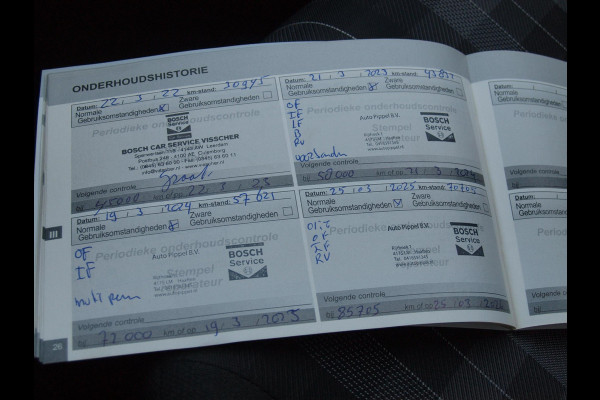 ONDERHOUDSHISTORIE
Datum: 22, 3, 22 km-stand: 30975
Normale Zware
Gebruiksomstandigheden Gebruiksomstandigheden
Periodieke onderhoudscontrole
BOSCH
Service
BOSCH CAR SERVICE VISSCHER
Volgende controle
bij 45000 km.of op 22, 3, 23
Datum: 21, 3, 2023 km-stand: 43837
Normale Zware
Gebruiksomstandigheden Gebruiksomstandigheden
Periodieke onderhoudscontrole
OF
IF
LF
B
RV
Auto Pippel B.V.
BOSCH
Service
Stempel
Volgende controle
bij 58000 km.of op 21, 3, 2024
Datum: 19, 3, 2024 km-stand: 57621
Normale Zware
Gebruiksomstandigheden Gebruiksomstandigheden
Periodieke onderhoudscontrole
OF
IF
Auto Pippel B.V.
BOSCH
Service
Stempel
Volgende controle
bij 72000 km.of op 19, 3, 2025
Datum: 25, 03, 2025 km-stand: 70705
Normale Zware
Gebruiksomstandigheden Gebruiksomstandigheden
Periodieke onderhoudscontrole
OF
IF
RV
Auto Pippel B.V.
BOSCH
Service
Stempel
Volgende controle
bij 85705 km.of op 25, 03,
III
26